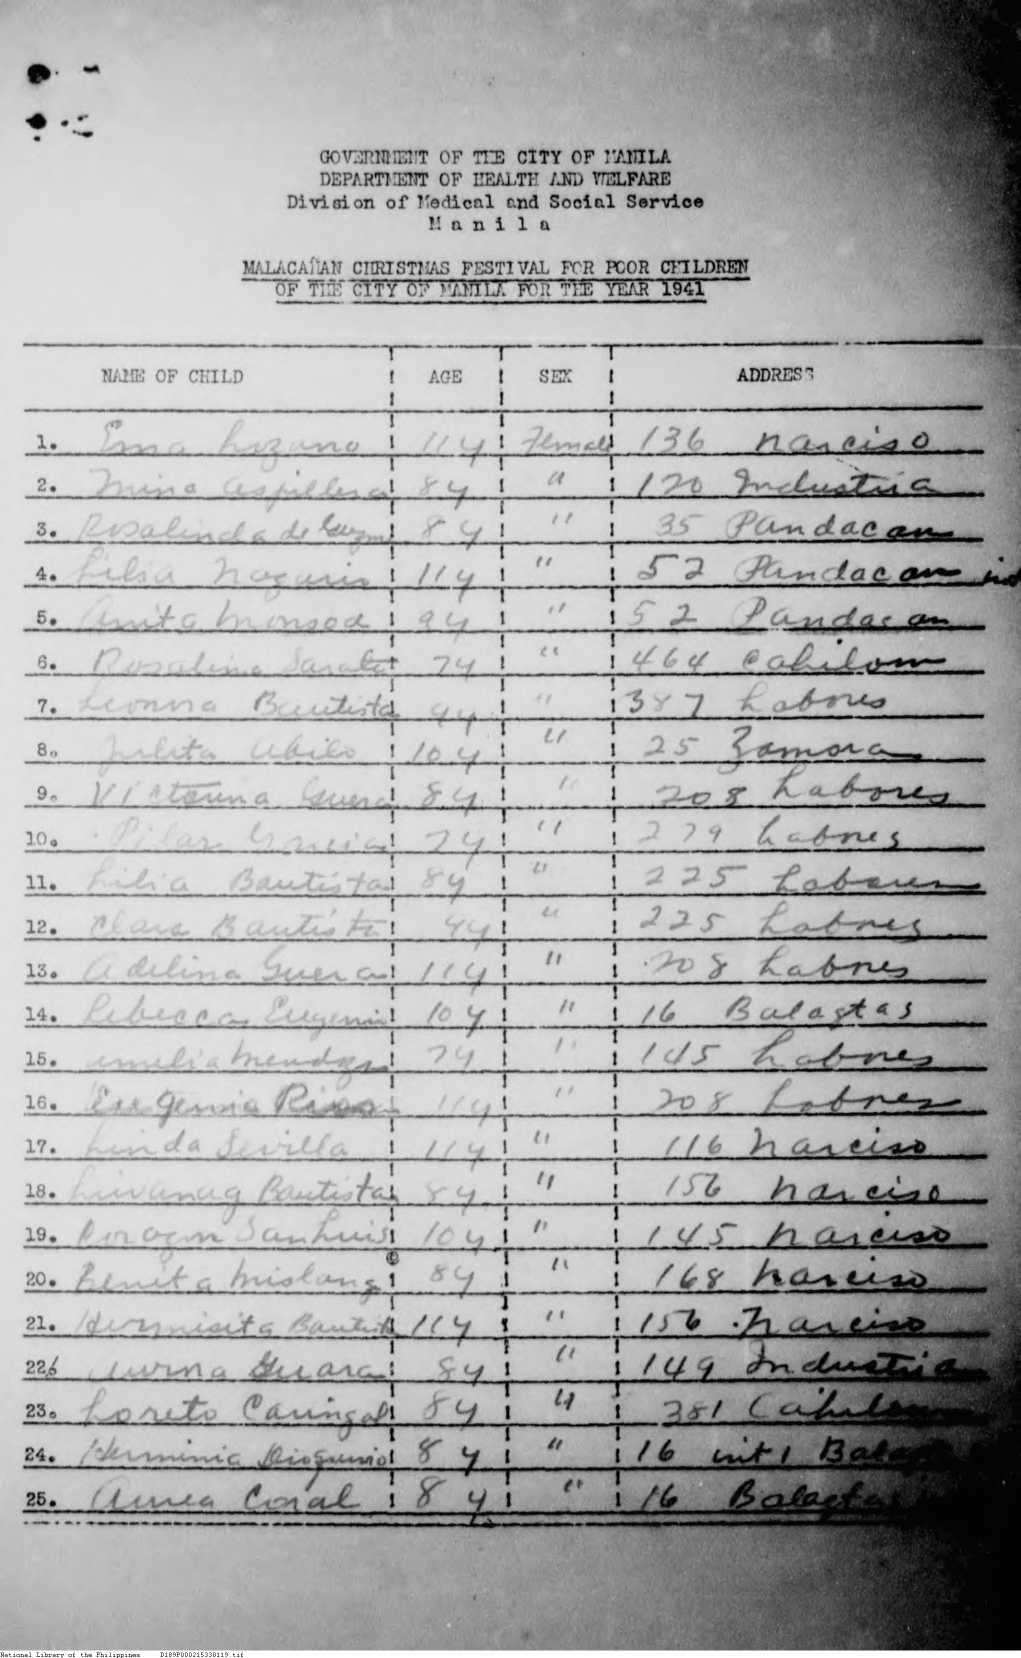 GOVERNMENT OF THE CITY OF MANILA
DEPARTMENT OF HEALTH AND WELFARE
Division of Medical and Social Service
M a n i l a
MALACAÑAN CHRISTMAS FESTIVAL FOR POOR CHILDREN
OF THE CITY OF MANILA FOR THE YEAR 1941
NAME OF CHILD AGE SEX ADDRESS
1. Ema Lozano 11 y Female 136 Narciso
2. 8 y " 120 Industria
3. Rosalinda de Guzm 8 y " 35 Pandacan
4. 11 y " 52 Pandacan int
5. Anita Monsod 9 y " 52 Pandacan
6. Rosalina 7 y " 464 Cahilom
7. Leonora Bautista 9 y " 387 Labores
8. Julita Abilo 10 y " 25 Zamora
9. Guera 8 y " 208 Labores
10. Pilar Garcia 7 y " 279 Labores
11. Lilia Bautista 8 y " 225 Labores
12. Clara Bautista 9 y " 225 Labores
13. Adelina Guera 11 y " 208 Labores
14. Rebecca Eugenio 10 y " 16 Balagtas
15. Amelia Mendoza 7 y " 145 Labores
16. Eugenia 11 y " 208 Labores
17. Linda Sevilla 11 y " 116 Narciso
18. Liwanag Bautista 8 y " 156 Narciso
19. Corazon San Luis 10 y " 145 Narciso
20. Benita Mislang 8 y " 168 Narciso
21. Hermisita Bautista 11 y " 156 Narciso
22. Guara 8 y " 149 Industria
23. Loreto Caringal 8 y " 381 Cahilom
24. Herminia 8 y " 16 int 1 Balag
25. Aurea Coral 8 y " 16 Balagtas
National Library of the Philippines D189P000215338119.tif